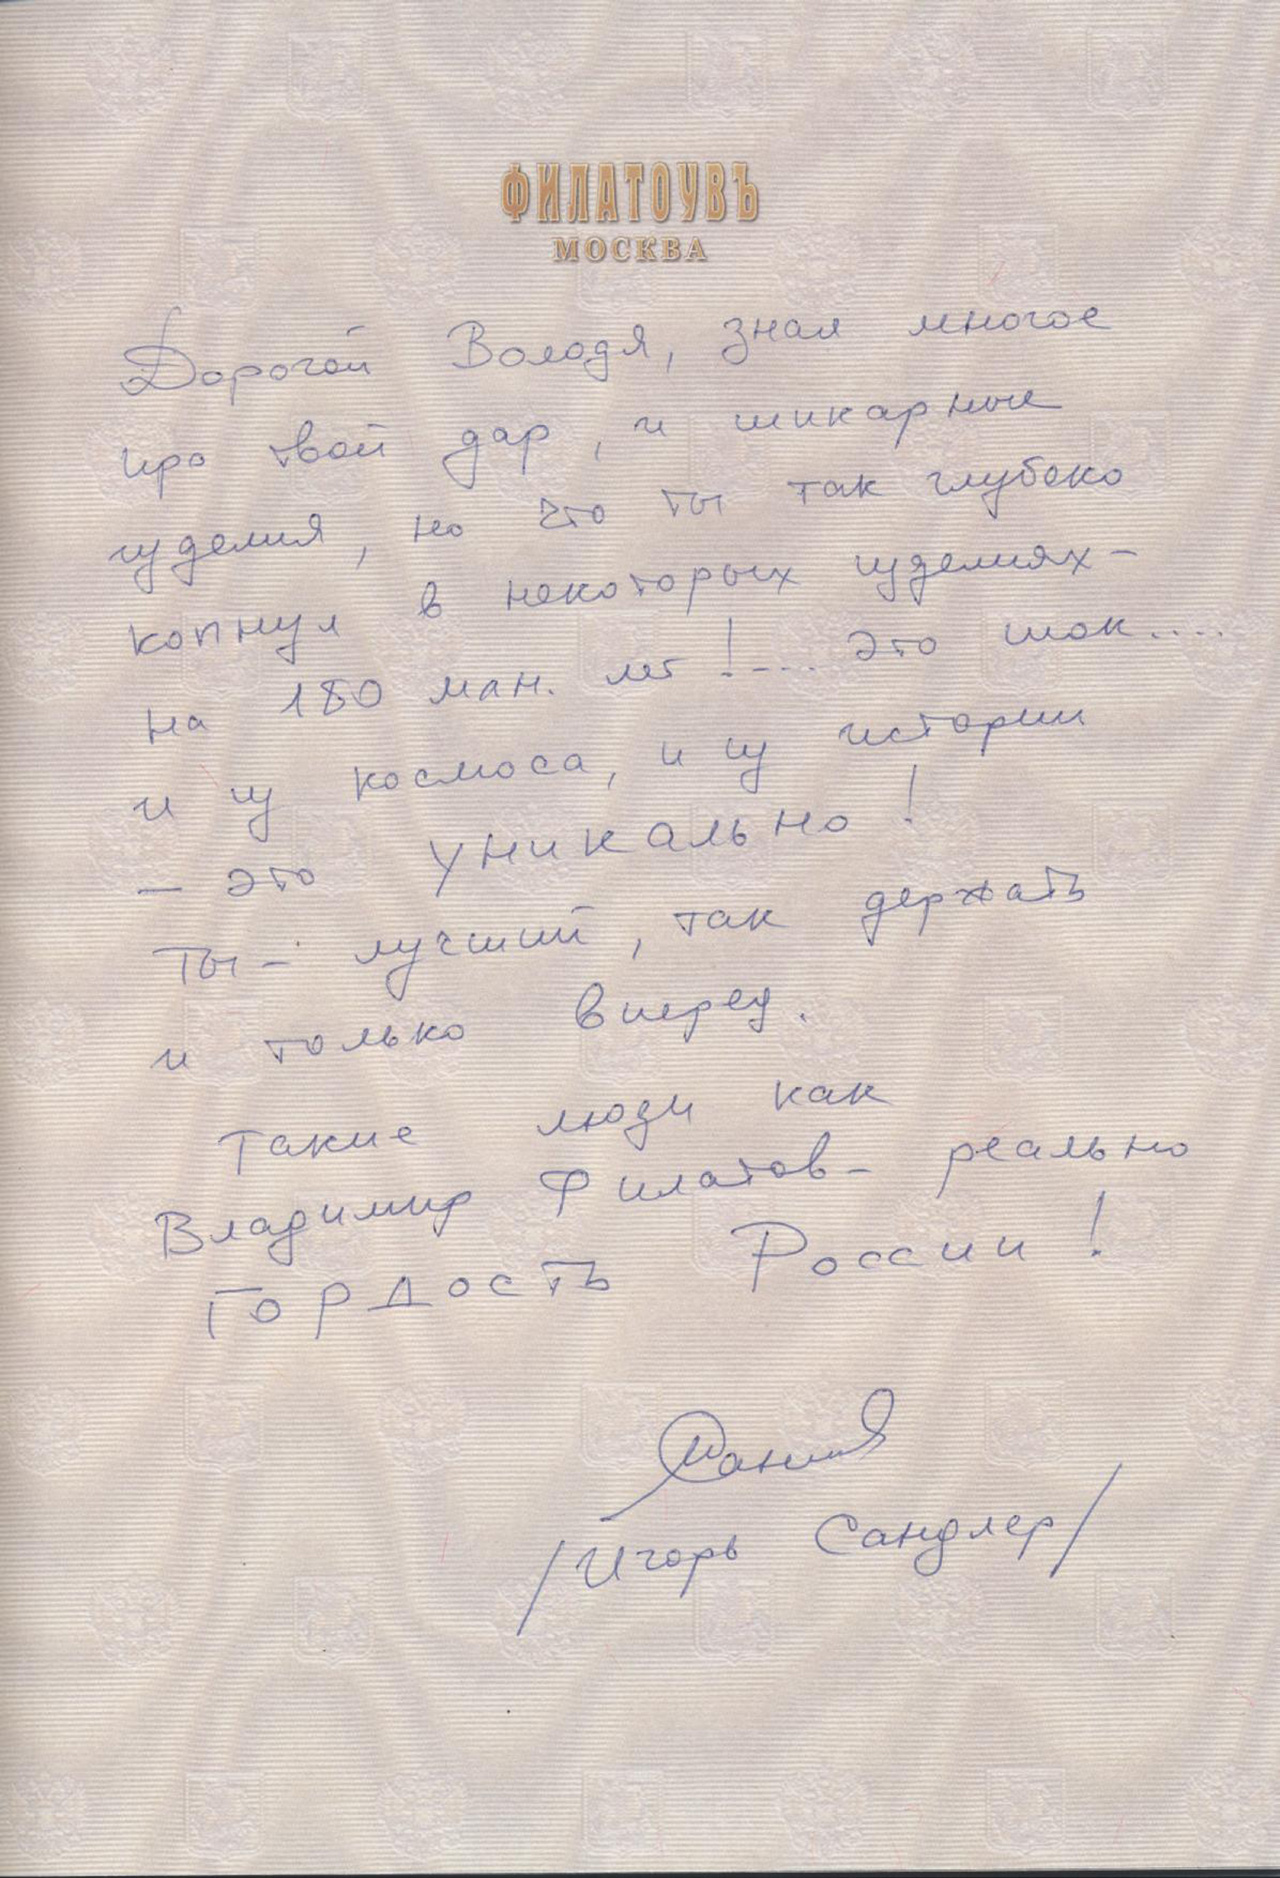 ФИЛАТОУВЪ
МОСКВА
Дорогой Володя, знал многое
про твой дар, и шикарные
изделия, но что ты так глубоко
копнул в некоторых изделиях -
на 180 млн. лет!.... это шок....
и из космоса, и из истории
- это уникально!
Ты - лучший, так держать
и только вперед.
Такие люди как
Владимир Филатов - реально
ГОРДОСТЬ России!
/Игорь Сандлер/